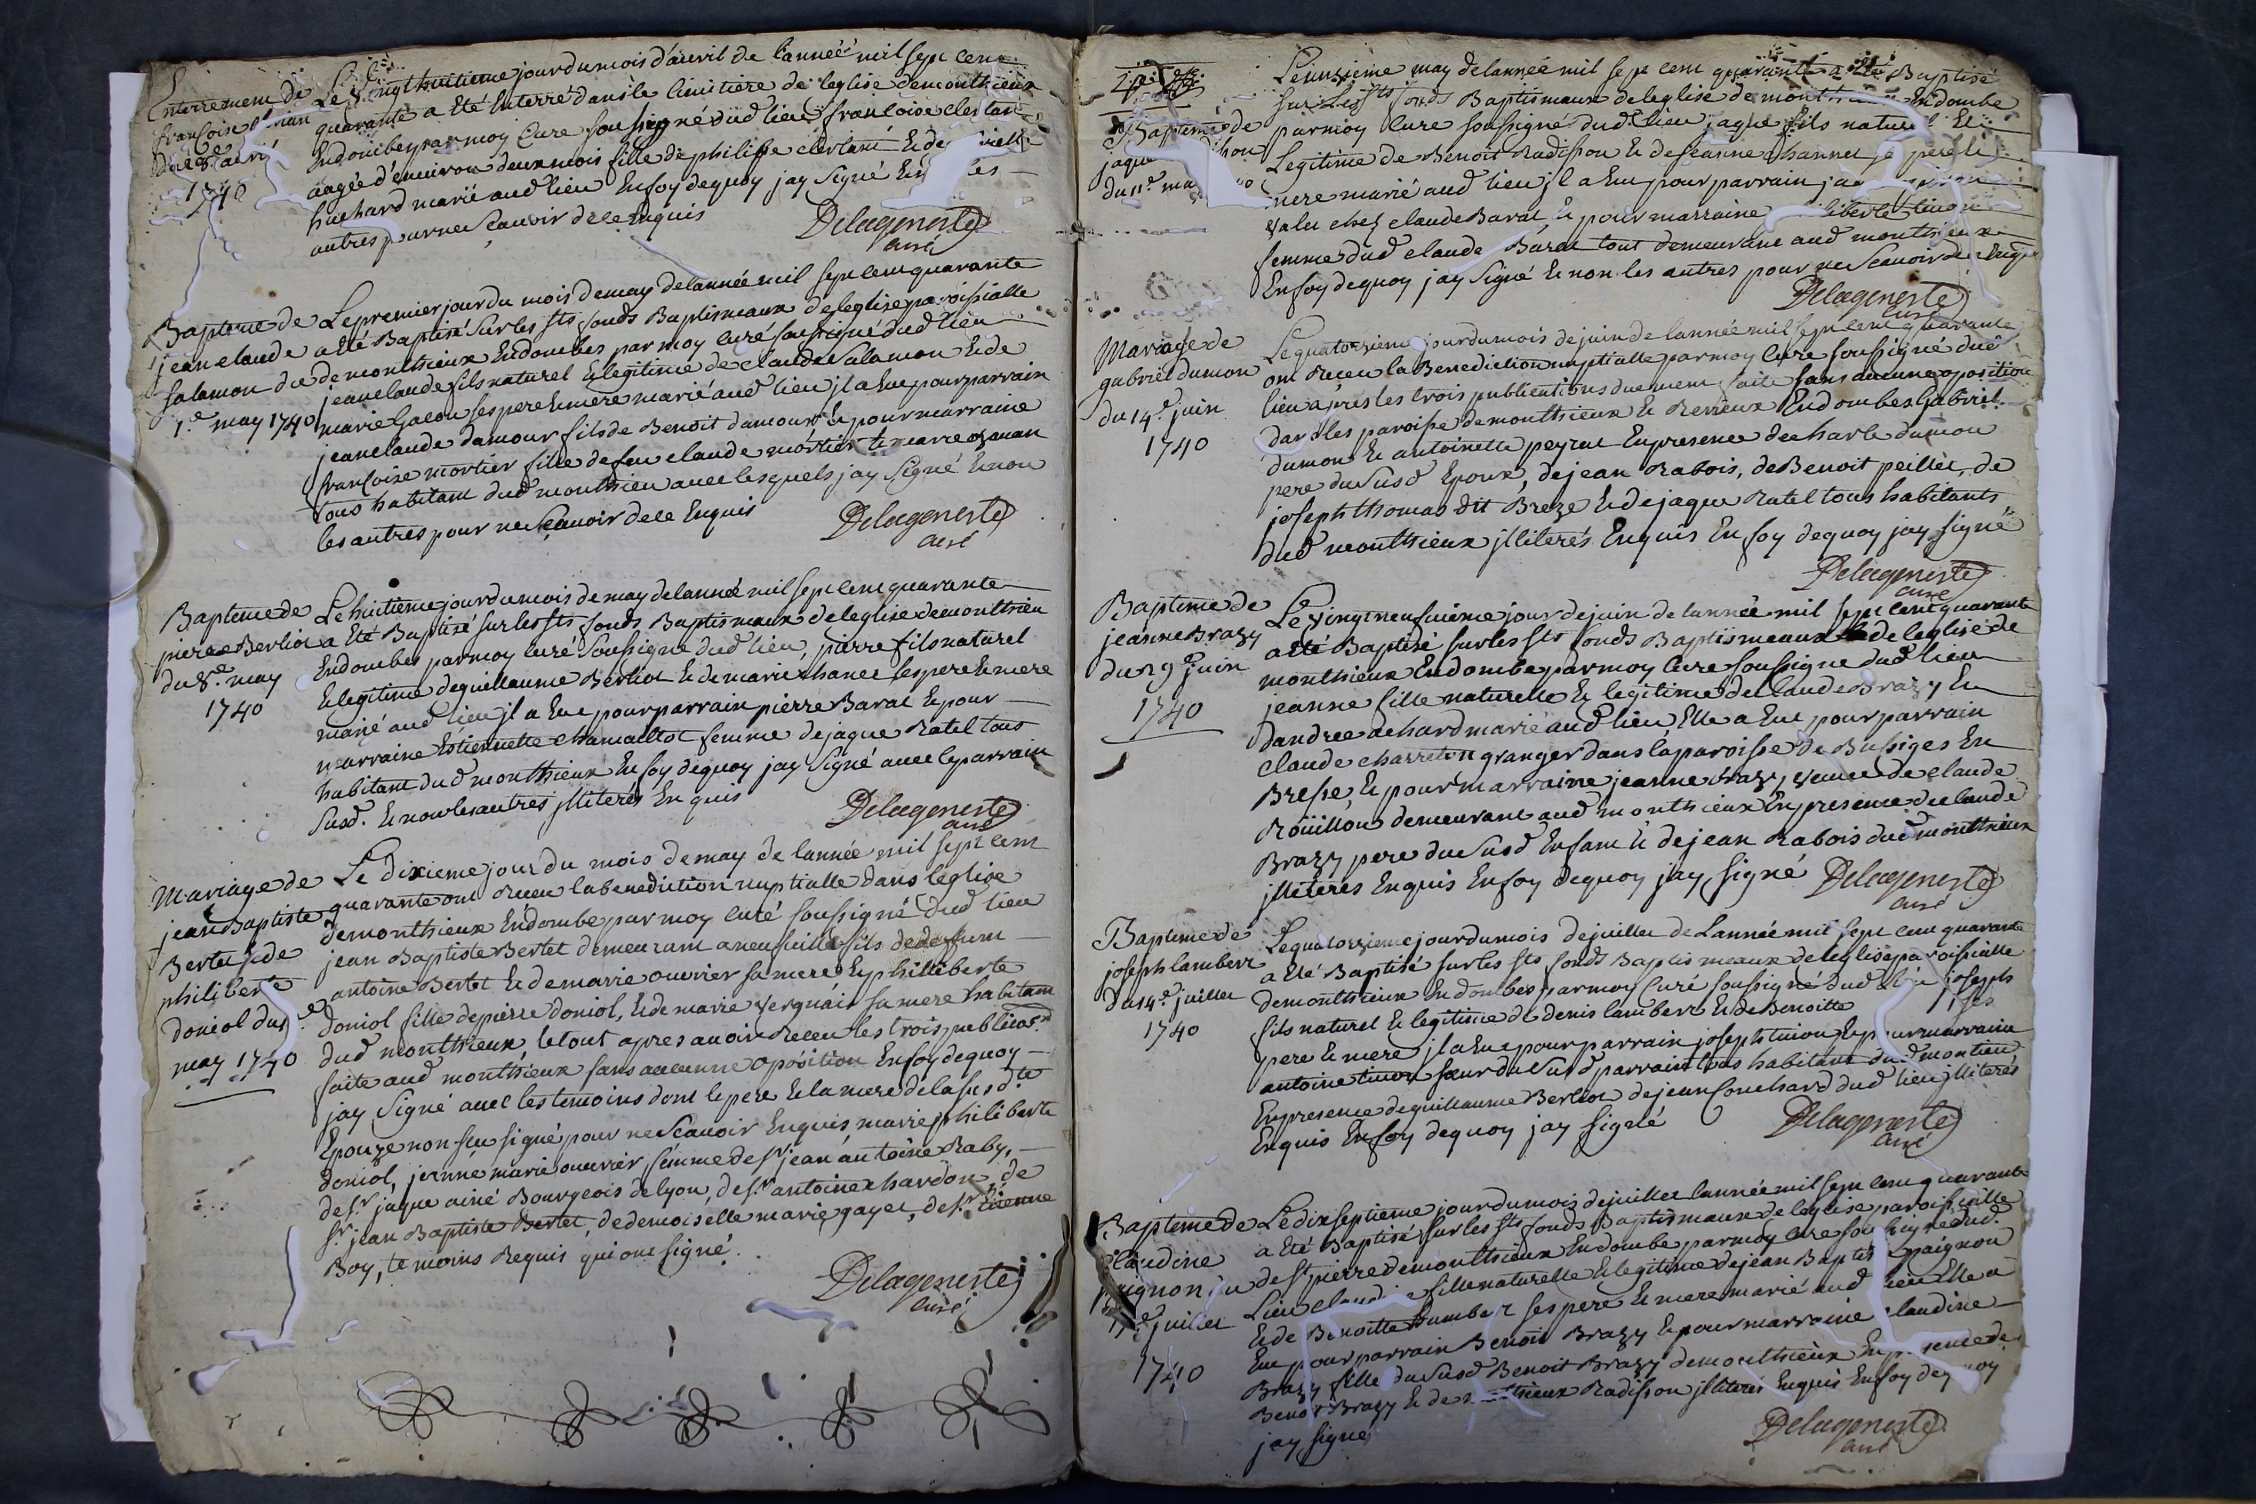 Enterrement de
françoise
du 28e avril
1740
Le vingt huitieme jour du mois d'avril de l'année mil sept cens
quarante a eté enterré dans le cimitiere de l'eglise de monthieux
en dombes par moy curé soussigné dud lieu françoise clertant
aagée d'environ deux mois fille de philippe clertant & de
huchard marié aud lieu en foy dequoy jay signé & les
autres pour ne scavoir de ce enquis
Delageneste
curé
Bapteme de
jean claude
salamon du
1.e may 1740
Le premier jour du mois de may de lannée mil sept cent quarante
a eté Baptisé sur les sts fonds Baptismaux de leglise paroissialle
de monthieux en dombes par moy curé soussigné dud lieu
jean claude fils naturel & legitime de claude salamon & de
marie Galeon ses pere & mere marié aud lieu jl a eue pour parrain
jean claude damour fils de Benoit damour & pour marraine
françoise mortier fille de feu claude mortier
tous habitant dud monthieu avec lesquels jay signé & non
les autres pour ne sçavoir de ce enquis
Delageneste
curé
Bapteme de
pierre Berliot
du 8.e may
1740
Le huitieme jour du mois de may de lanneé mil sept cent quarante
a eté Baptisé sur les sts fonds Baptismaux de leglise de monthieu
en dombes par moy curé soussigné dud lieu, pierre fils naturel
& legitime de guillaume Berliot & de marie chanel ses pere & mere
marié aud lieu jl a eue pour parrain pierre Barat & pour
marraine Estiennette chamaillot femme de jaque Ratel tous
habitant dud monthieux en foy dequoy jay signé avec le parrain
susd. & non les autres jlliterés enquis
Delageneste
curé
Mariage de
jean Baptiste
Bertet & de
philiberte
doniol du
may 1740
Le dixieme jour du mois de may de lannée mil sept cent
quarante ont receu la benediction nuptialle dans leglise
de monthieux en dombe par moy curé soussigné dud lieu
jean Baptiste Bertet demeurant a neufville fils de deffunt
antoine Bertet & de marie ouvrier sa mere & philliberte
doniol fille de pierre doniol, & de marie verguais sa mere habitant
dud monthieux, le tout apres avoir receu les trois publicaons
faite aud monthieux sans aucunne oposition en foy dequoy
jay signé avec les temoins dont le pere & la mere de la susd.te
Epouze non sceu signé pour ne scavoir enquis marie philiberte
doniol, jeanne marie ouvrier, femme de sr jean antoine Raby,
de s.r jaque ainé Bourgeois de lyon, de s.r antoine chardon, de
s.r jean Baptiste Bertet, de demoiselle marie gayet, de s.r etienne
Boy, temoins requis qui ont signé.
Delageneste
curé
Bapteme de
jaque
du 11.e may
Le unzieme may de lannée mil sept cent quarante a eté Baptisé
sur les sts fonds Baptismaux de leglise de monthieux en dombe
par moy curé soussigné dud. lieu jaque fils naturel &
legitime de Benoit Radisson & de jeanne channel pere &
mere marié aud lieu jl a eue pour parrain
valet chez claude Barat & pour marraine
femme dud claude Barat tout demeurant aud monthieux
En foy dequoy jay signé & non les autres pour ne scavoir de enquis
Delageneste
curé
Mariage de
gabriel dumon
du 14.e juin
1740
Le quatorzieme jour du mois de juin de lannée mil sept cent quarante
ont receu la Benediction nuptialle par moy curé soussigné dud
lieu apres les trois publications duement faite sans aucune oposition
dans les paroisse de monthieux & Revieux en dombes gabriel
dumon & antoinette peyrat en presence de charle dumon
pere du susd epoux, de jean Rabois, de Benoit peillet, de
joseph thomas dit Breze & de jaque Ratel tous habitants
dud monthieux jlliterés enquis en foy dequoy jay signé
Delageneste
curé
Bapteme de
jeanne Brazy
du 29e juin
1740
Le vingt neufvieme jour de juin de lannée mil sept cent quarante
a eté Baptisé sur les sts fonds Baptismeaux de leglise de
monthieux en dombe par moy curé soussigné dud lieu
jeanne fille naturelle & legitime de claude Brazy &
dandree achard marié aud lieu, Elle a eue pour parrain
claude charreton granger dans la paroisse de Bussiges en
Bresse, & pour marraine jeanne Brazy, veuve de claude
Roüillon demeurant aud monthieux en presence de claude
Brazy pere du susd enfant & de jean Rabois dud monthieux
jlliterés enquis en foy dequoy jay signé
Delageneste
curé
Bapteme de
joseph lambert
du 14.e juillet
1740
Le quatorzieme jour du mois de juillet de Lannée mil sept cent quarante
a eté Baptisé sur les sts fonds Baptismeaux de leglise paroissialle
de monthieux en dombes par moy curé soussigné dud lieu joseph
fils naturel & legitime de denis lambert & de Benoitte ses
pere & mere jl a eue pour parrain joseph & pour marraine
antoine soeur du susd parrain tous habitant dud montieu
En presence de guillaume Berliot de jean souchard dud lieu jlliterés
Enquis en foy dequoy jay signé
Delageneste
curé
Bapteme de
claudine
paignon du
17.e juillet
1740
Le dix septieme jour du mois de juillet lannée mil sept cent quarante
a eté Baptisé sur les sts fonds Baptismaux de leglise paroissialle
de St pierre de monthieux en dombe par moy curé soussigné dud.
Lieu fille naturelle & legitime de jean Baptis paignon
& de Benoitte humbert ses pere & mere marié aud lieu Elle a
Eue pour parrain Benoit Brazy & pour marraine claudine
Brazy fille du susd Benoit Brazy de monthieux en presence de
Benoit Brazy & de Radisson jlliterés enquis en foy dequoy
jay signé
Delageneste
curé